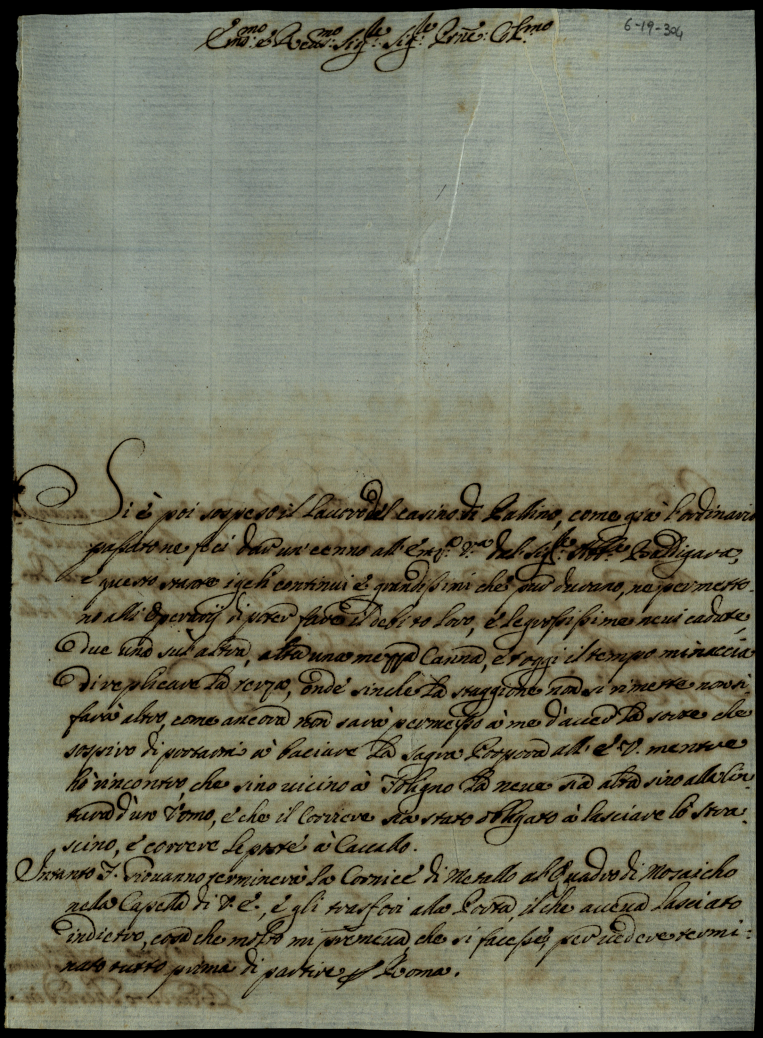 6-19-304
E.mo e Rev.mo Sig.re Sig.re Prne: Col.mo
Si è poi sospeso il lavoro del casino di Pallino, come già l'ordinario
passato ne feci dar un cenno all'
e questo stante i geli continui è grandissimi che pur durano, ne permetto-
no alli Operarij di poter fare il debito loro, è le grossissime nevi cadute,
due una su l'altra, alta una mezza Canna, et oggi il tempo minaccia
di replicare la terza, onde sinche la staggione non si rimette non si
farà altro, come ancora non sarà permesso à me d'aver la sorte che
sospiro di portarmi à baciare la Sagra Porpora all' E. V. mentre
hò rincontro che sino vicino à Foligno la neve sia alta sino alla Cin-
tura d'un Uomo, è che il Corriere sia stato obligato à lasciare lo stra-
scino, è correre le poste à Cavallo.
Intanto F. Giovanno terminerà la Cornice di Metallo al Quadro di Mosaicho
nela Capella di V. E., è gli trafori alla Porta, il che aveva lasciato
indietro, cosa che molto mi premeva che si facesse, per vedere termi-
nato tutto prima di partire p Roma.